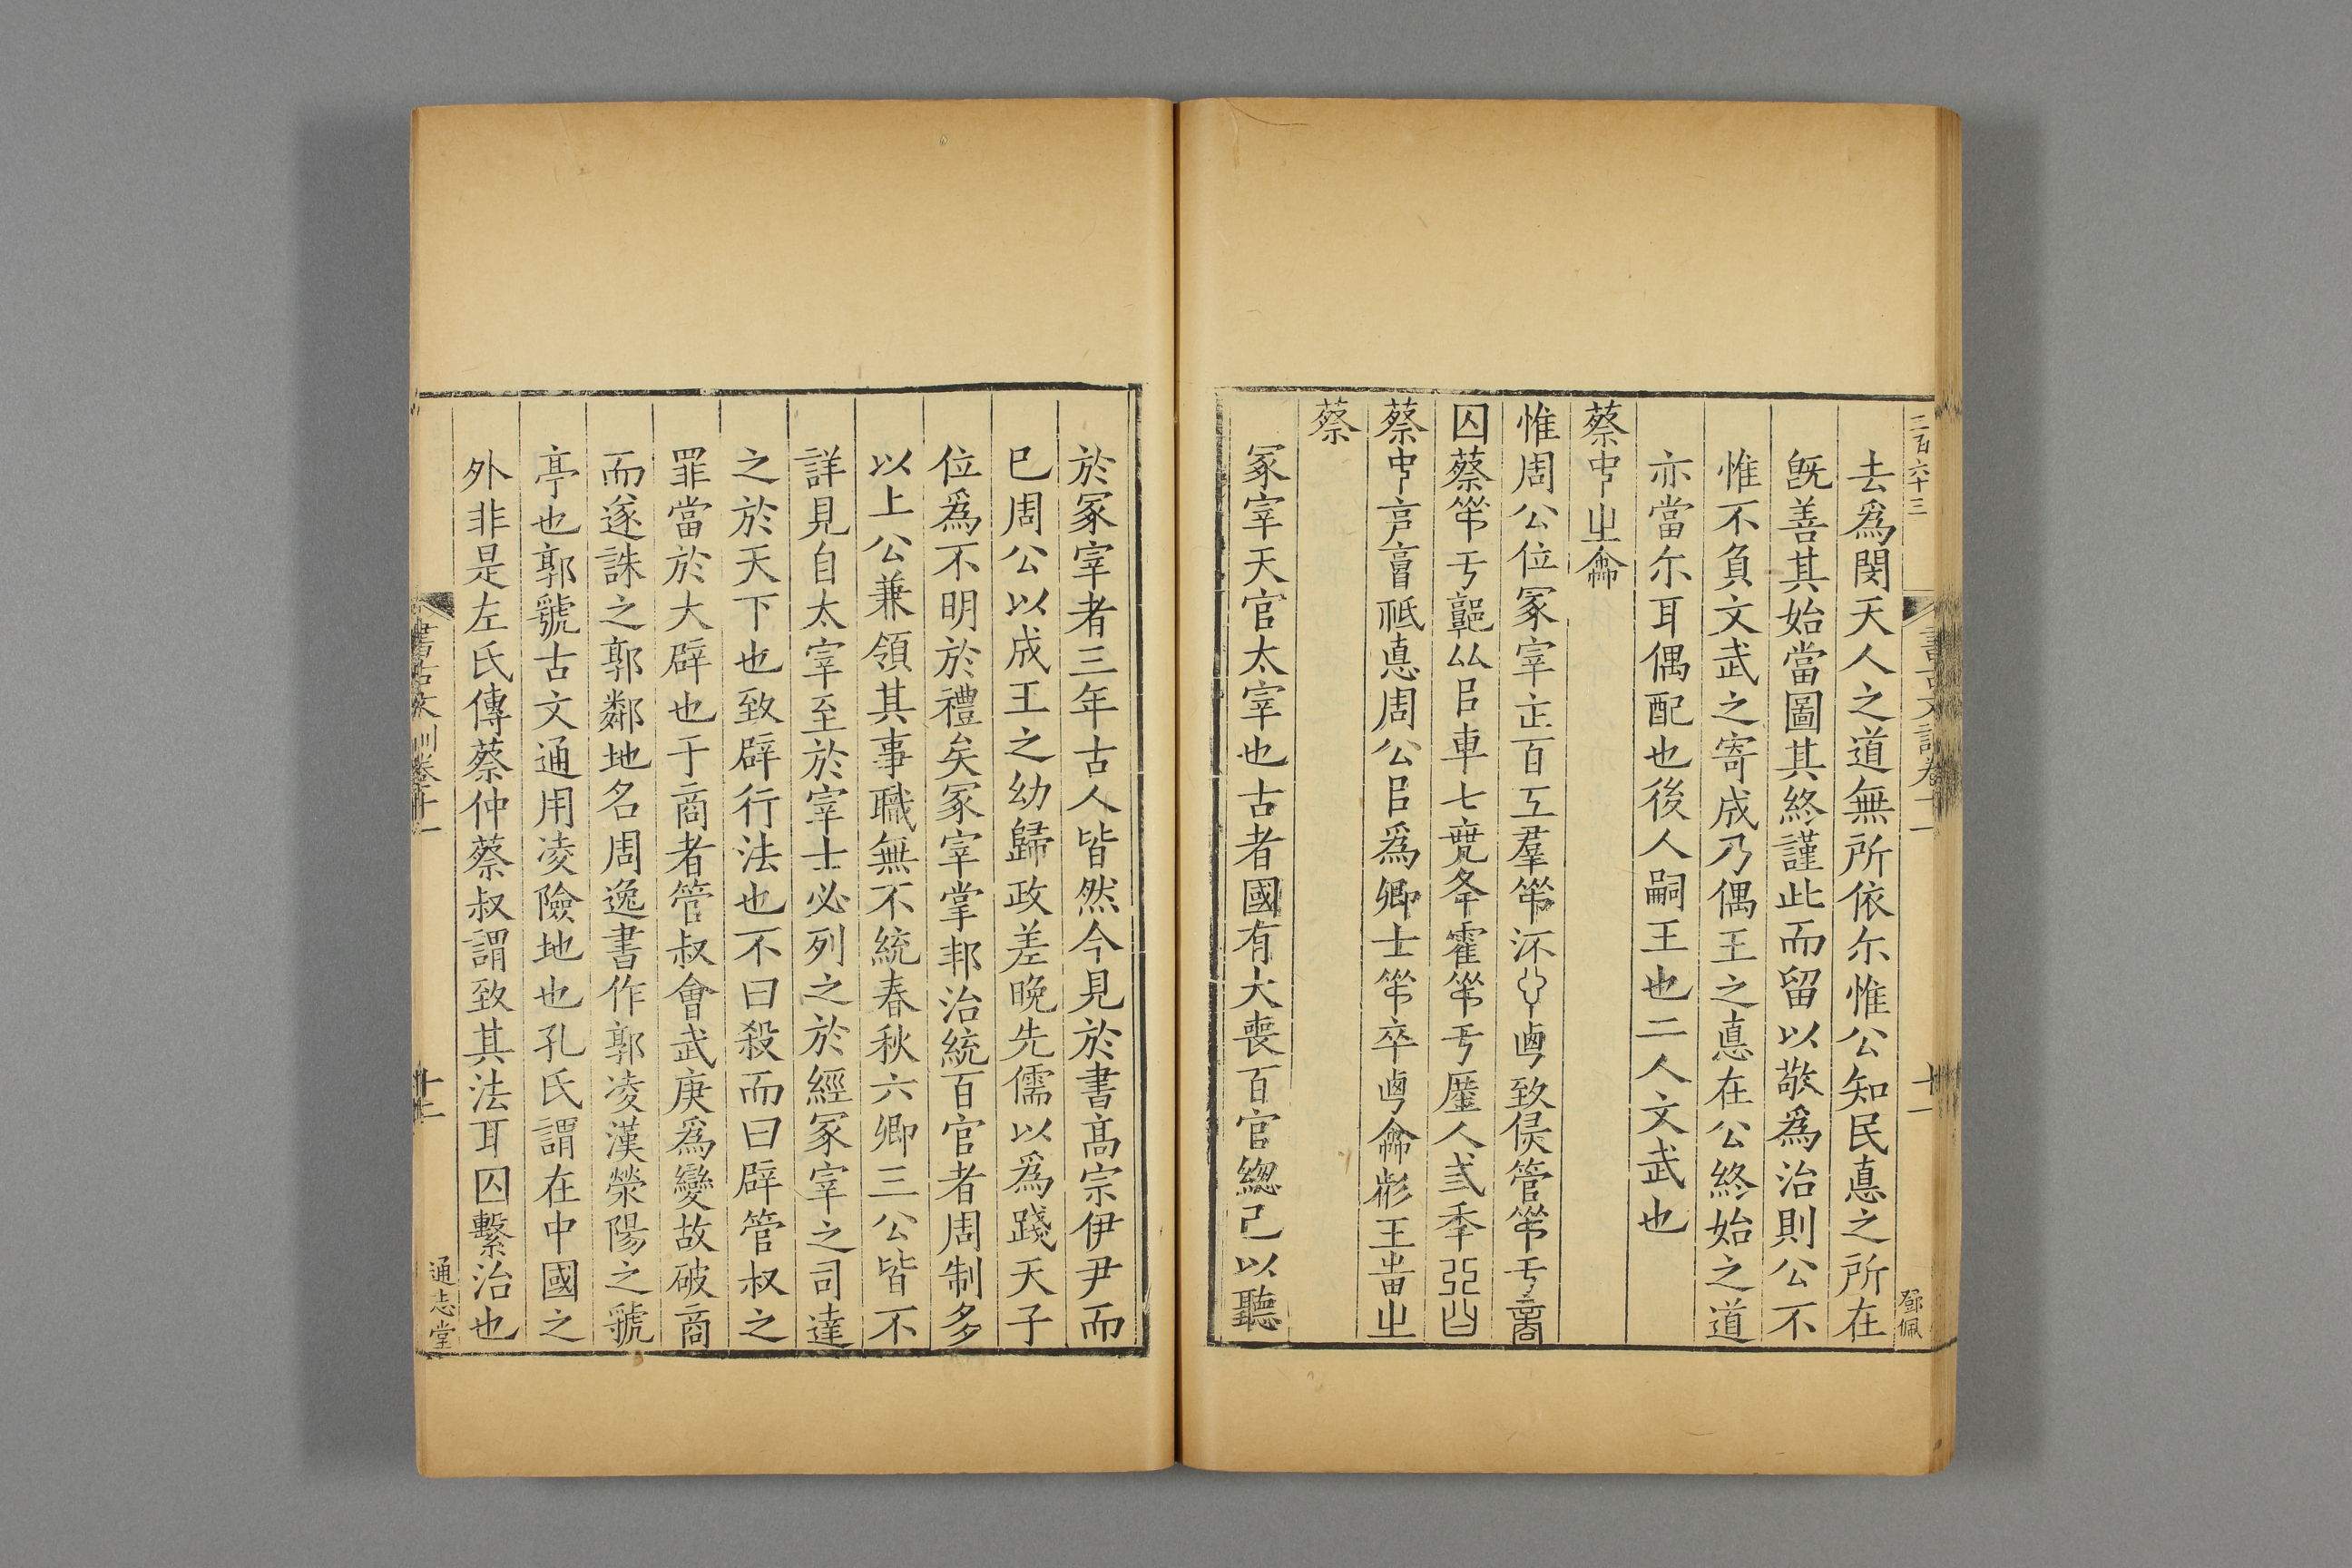 二百六十三
書古文訓卷十一
十一
鄧佩
去爲閔天人之道無所依尓惟公知民悳之所在
旣善其始當圖其終謹此而留以敬爲治則公不
惟不負文武之寄成乃偶王之悳在公終始之道
亦當尓耳偶配也後人嗣王也二人文武也
蔡中㞢侖
惟周公位冢宰㱏百工羣
囚蔡
蔡中
蔡
冢宰天官太宰也古者國有大喪百官總己以聽
於冢宰者三年古人皆然今見於書高宗伊尹而
已周公以成王之幼歸政差晚先儒以爲踐天子
位爲不明於禮矣冢宰掌邦治統百官者周制多
以上公兼領其事職無不統春秋六卿三公皆不
詳見自太宰至於宰士必列之於經冢宰之司達
之於天下也致辟行法也不曰殺而曰辟管叔之
罪當於大辟也于商者管叔會武庚爲變故破商
而遂誅之郭鄰地名周逸書作郭凌漢滎陽之虢
亭也郭虢古文通用凌險地也孔氏謂在中國之
外非是左氏傳蔡仲蔡叔謂致其法耳囚繫治也
書古文訓卷十一
十二
通志堂